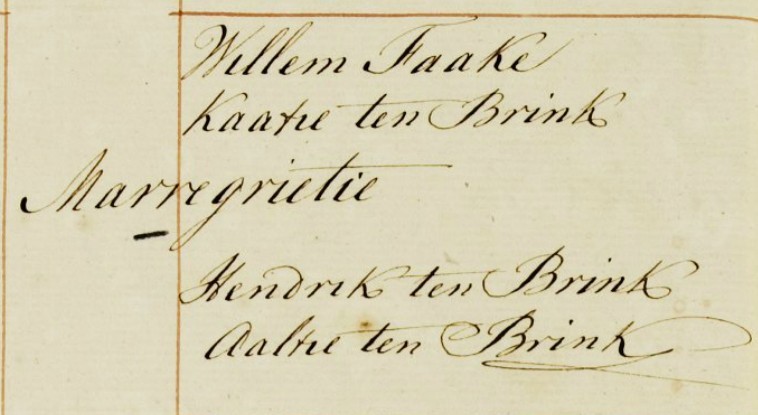 Willem Faake
Kaatie ten Brink
Marregrietie
Hendrik ten Brink
Aaltie ten Brink